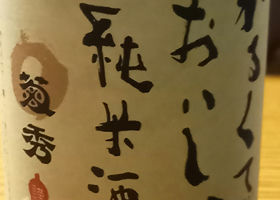 かるくて
おいし
純米酒
菊秀